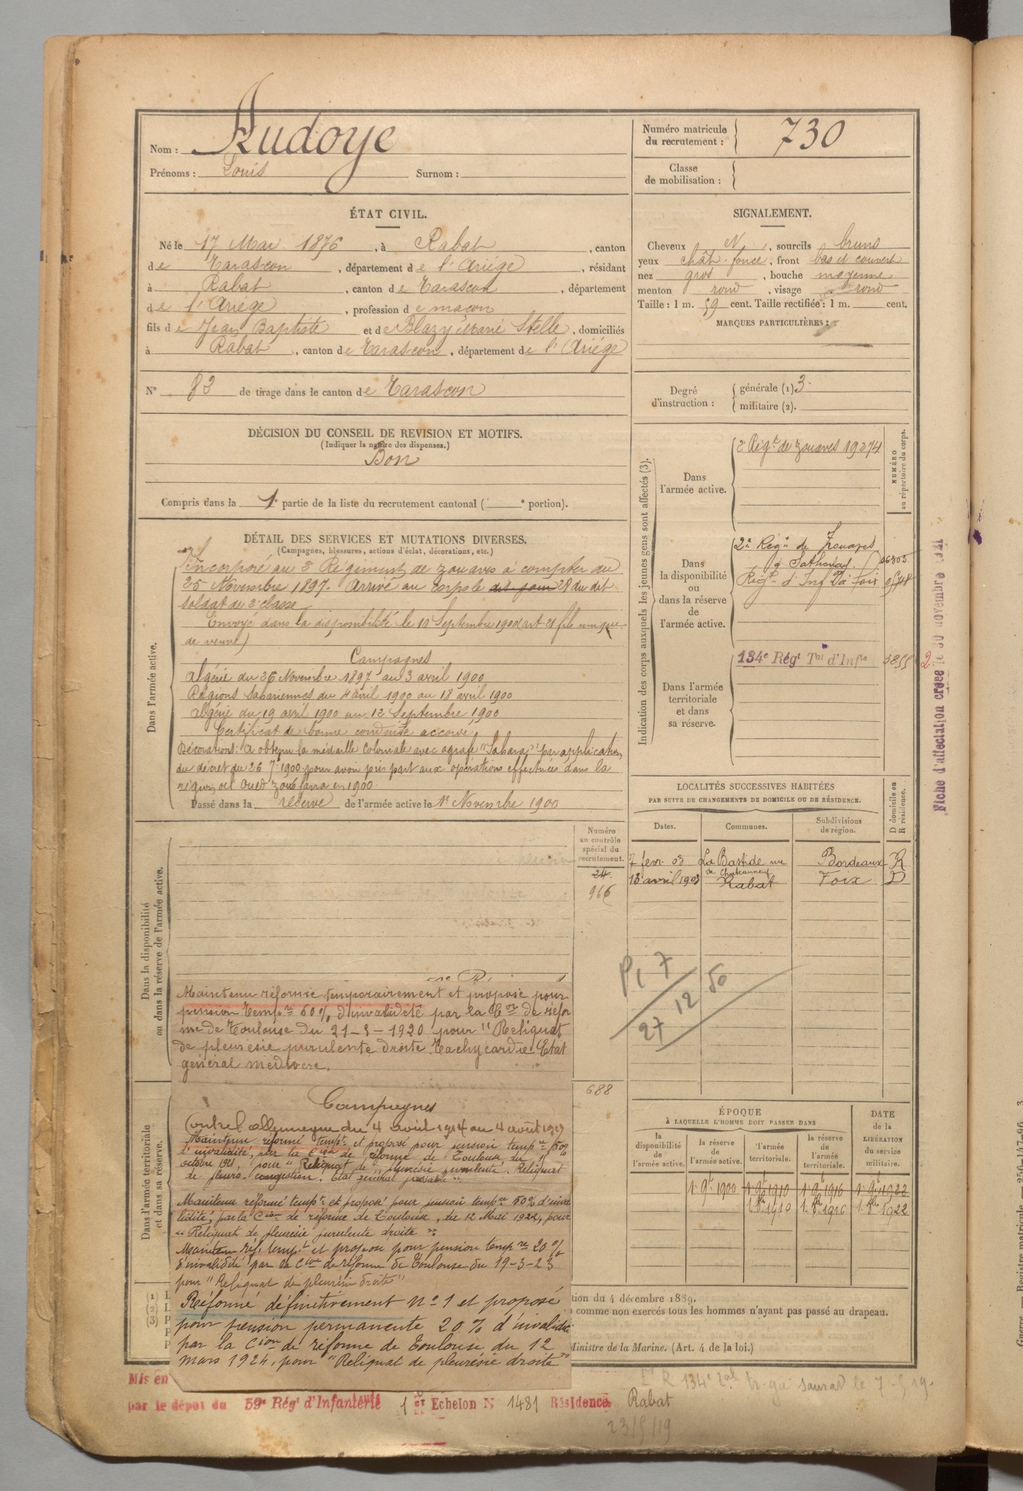 Nom : Audoye
Prénoms : Louis Surnom :
Numéro matricule du recrutement : 730
Classe de mobilisation :
ÉTAT CIVIL.
Né le 17 Mai 1876, à Rabat, canton
de Tarascon, département de l'Ariége, résidant
à Rabat, canton de Tarascon, département
de l'Ariége, profession de maçon
fils de Jean Baptiste et de Blazy Marie Stelle, domiciliés
à Rabat, canton de Tarascon, département de l'Ariége
N° 83 de tirage dans le canton de Tarascon
SIGNALEMENT.
Cheveux N, sourcils bruns
yeux chât. foncé, front bas et couvert
nez gros, bouche moyenne
menton rond, visage rond
Taille : 1 m. 59 cent. Taille rectifiée : 1 m. cent.
MARQUES PARTICULIÈRES :
Degré d'instruction : générale (1) 3
militaire (2).
DÉCISION DU CONSEIL DE REVISION ET MOTIFS.
(Indiquer la nature des dispenses.)
Bon
Compris dans la 1e partie de la liste du recrutement cantonal ( e portion).
DÉTAIL DES SERVICES ET MUTATIONS DIVERSES.
(Campagnes, blessures, actions d'éclat, décorations, etc.)
Dans l'armée active.
Incorporé au 3e Régiment de zouaves à compter du
25 Novembre 1897. Arrivé au corps le dit jour 28 du dit
soldat de 2e classe
Envoyé dans la disponibilité le 10 Septembre 1900 (art 21 fils unique
de veuve)
Campagnes
Algérie du 26 Novembre 1897 au 3 avril 1900
Régions Sahariennes du 4 avril 1900 au 18 avril 1900
Algérie du 19 avril 1900 au 12 Septembre 1900
Certificat de bonne conduite accordé
Décorations: A obtenu la médaille Coloniale avec agrafe "Sahara" par application
du décret du 26 7 1900 pour avoir pris part aux opérations effectuées dans la
région de l'Oued Zousfana en 1900
Passé dans la réserve de l'armée active le 1er Novembre 1900
Indication des corps auxquels les jeunes gens sont affectés (3).
NUMÉRO au répertoire du corps.
Dans l'armée active.
3e Régt de zouaves 19274
Dans la disponibilité ou dans la réserve de l'armée active.
2e Régt de Zouaves
à Sathonay
Régt d'Infie de Foix
Dans l'armée territoriale et dans sa réserve.
134e Régt Tal d'Infie
Fiche d'affectation créée le 30 novembre 1921
LOCALITÉS SUCCESSIVES HABITÉES
PAR SUITE DE CHANGEMENTS DE DOMICILE OU DE RÉSIDENCE.
Dates. Communes. Subdivisions de région. D domicile ou R résidence.
7 fevr. 03 La Bastide Bordeaux R
13 avril 1903 Rabat Foix D
Numéro au contrôle spécial du recrutement.
24
966
688
Dans la disponibilité ou dans la réserve de l'armée active.
Maintenu réformé temporairement et proposé pour
pension tempre 60% d'invalidité par la Con de réfor
me de Toulouse du 21-5-1920 pour "Reliquat
de pleurésie purulente droite. Tachycardie. Etat
général médiocre.
P 1 7
27/12 50
Dans l'armée territoriale et dans sa réserve.
Campagnes
Contre l'allemagne du 4 avril 1914 au 4 août 1917
Maintenu réformé tempre et proposé pour pension tempre 50%
d'invalidité, par la Cion de réforme de Toulouse du
octobre 1921, pour "Reliquat de pleurésie purulente. Reliquat
de pleuro-congestion. Etat général passable"
Maintenu réformé tempre et proposé pour pension tempre 60% d'inva
lidité, par la Cion de réforme de Toulouse, du 12 Mai 1922, pour
"Reliquat de pleurésie purulente droite"
Maintenu réf. tempre et proposé pour pension tempre 20%
d'invalidité par la Cion de réforme de Toulouse du 19-3-23
pour "Reliquat de pleurésie droite"
Réformé définitivement n°1 et proposé
pour pension permanente 20% d'invalidité
par la Cion de réforme de Toulouse, du 12
mars 1924, pour "Reliquat de pleurésie droite"
ÉPOQUE
À LAQUELLE L'HOMME DOIT PASSER DANS
DATE de la LIBÉRATION du service militaire.
la disponibilité de l'armée active. la réserve de l'armée active. l'armée territoriale. la réserve de l'armée territoriale.
1 9bre 1900 1 9bre 1910 1 9bre 1916 1 9bre 1922
1 8bre 1910 1 8bre 1916 1 8bre 1922
tion du 4 décembre 1889.
comme non exercés tous les hommes n'ayant pas passé au drapeau.
Ministre de la Marine. (Art. 4 de la loi.)
Mis en
par le dépot du 59e Régt d'Infanterie 1er Echelon N° 1481 Résidence Rabat
23/5/19